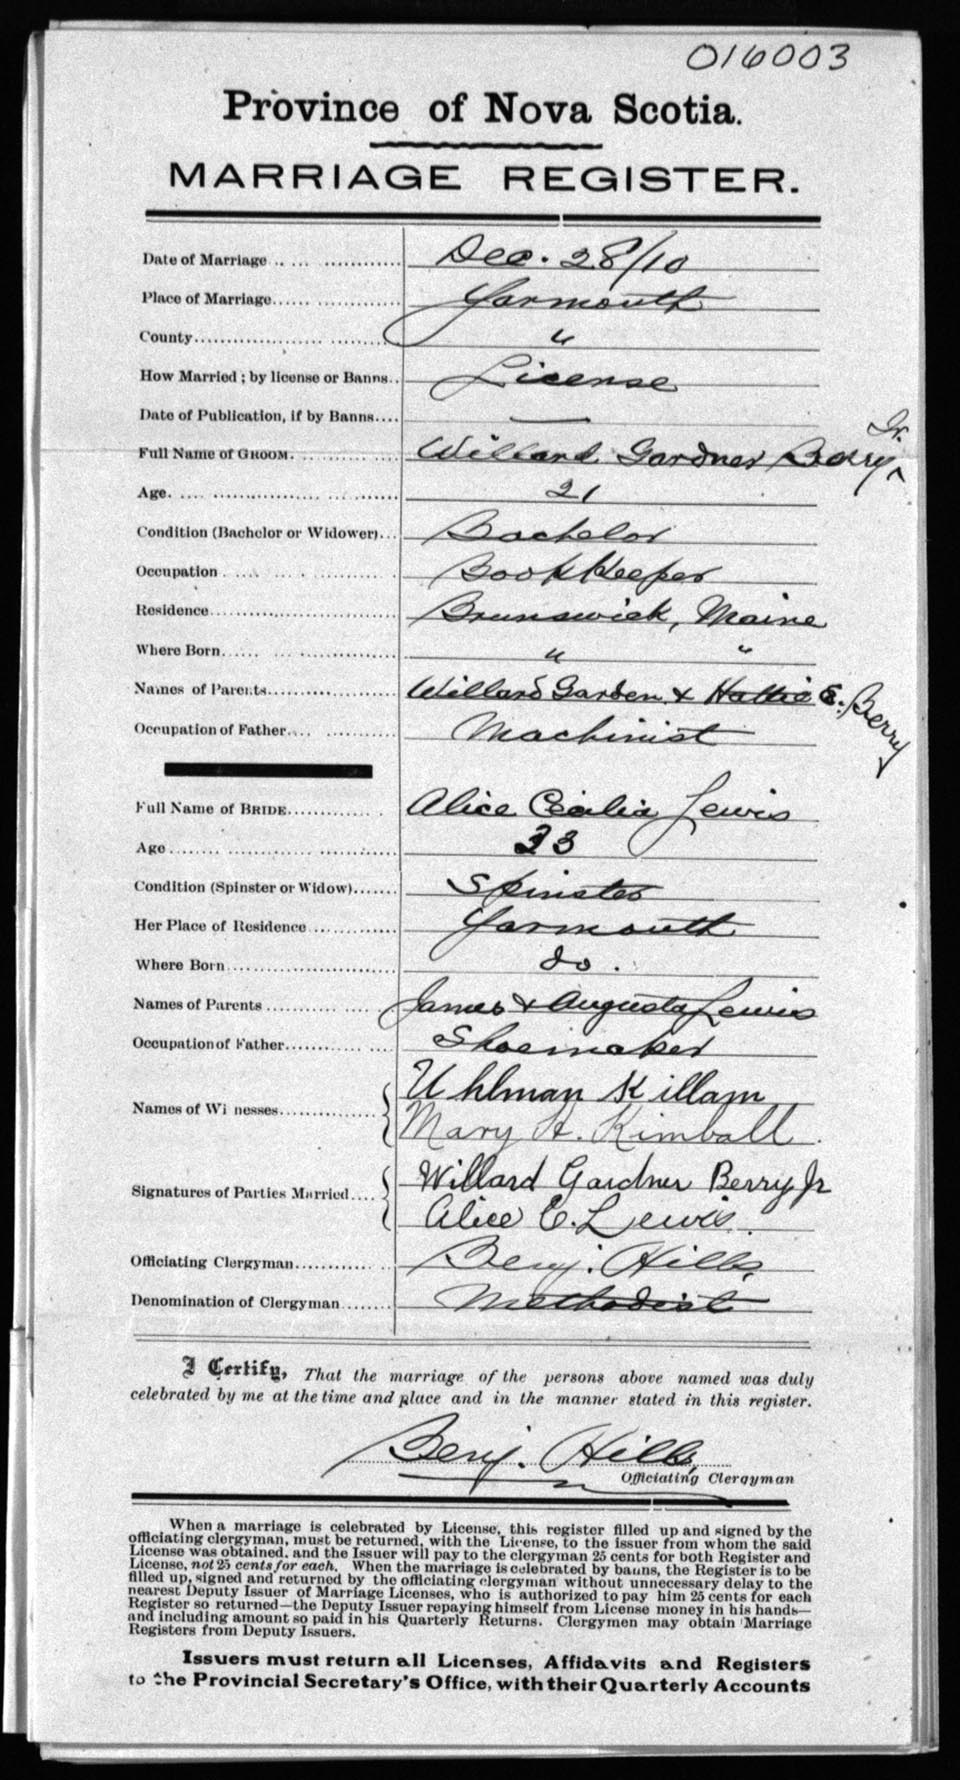 016003
Province of Nova Scotia.
MARRIAGE REGISTER.
Date of Marriage Dec. 28/10
Place of Marriage Yarmouth
County "
How Married; by license or Banns License
Date of Publication, if by Banns —
Full Name of GROOM. Willard Gardner Berry Jr.
Age 21
Condition (Bachelor or Widower) Bachelor
Occupation BookKeeper
Residence Brunswick, Maine
Where Born " "
Names of Parents Willard Garden & Hattie E. Berry
Occupation of Father Machinist
Full Name of BRIDE Alice Cecilia Lewis
Age 23
Condition (Spinster or Widow) Spinster
Her Place of Residence Yarmouth
Where Born do.
Names of Parents James & Augusta Lewis
Occupation of Father Shoemaker
Names of Wi nesses Uhlman Killam
Mary H. Kimball
Signatures of Parties Married Willard Gardner Berry Jr
Alice C. Lewis.
Officiating Clergyman Benj. Hills,
Denomination of Clergyman Methodist
I Certify, That the marriage of the persons above named was duly
celebrated by me at the time and place and in the manner stated in this register.
Benj. Hills,
Officiating Clergyman
When a marriage is celebrated by License, this register filled up and signed by the
officiating clergyman, must be returned, with the License, to the issuer from whom the said
License was obtained, and the Issuer will pay to the clergyman 25 cents for both Register and
License, not 25 cents for each. When the marriage is celebrated by banns, the Register is to be
filled up, signed and returned by the officiating clergyman without unnecessary delay to the
nearest Deputy Issuer of Marriage Licenses, who is authorized to pay him 25 cents for each
Register so returned—the Deputy Issuer repaying himself from License money in his hands—
and including amount so paid in his Quarterly Returns. Clergymen may obtain Marriage
Registers from Deputy Issuers.
Issuers must return all Licenses, Affidavits and Registers
to the Provincial Secretary's Office, with their Quarterly Accounts